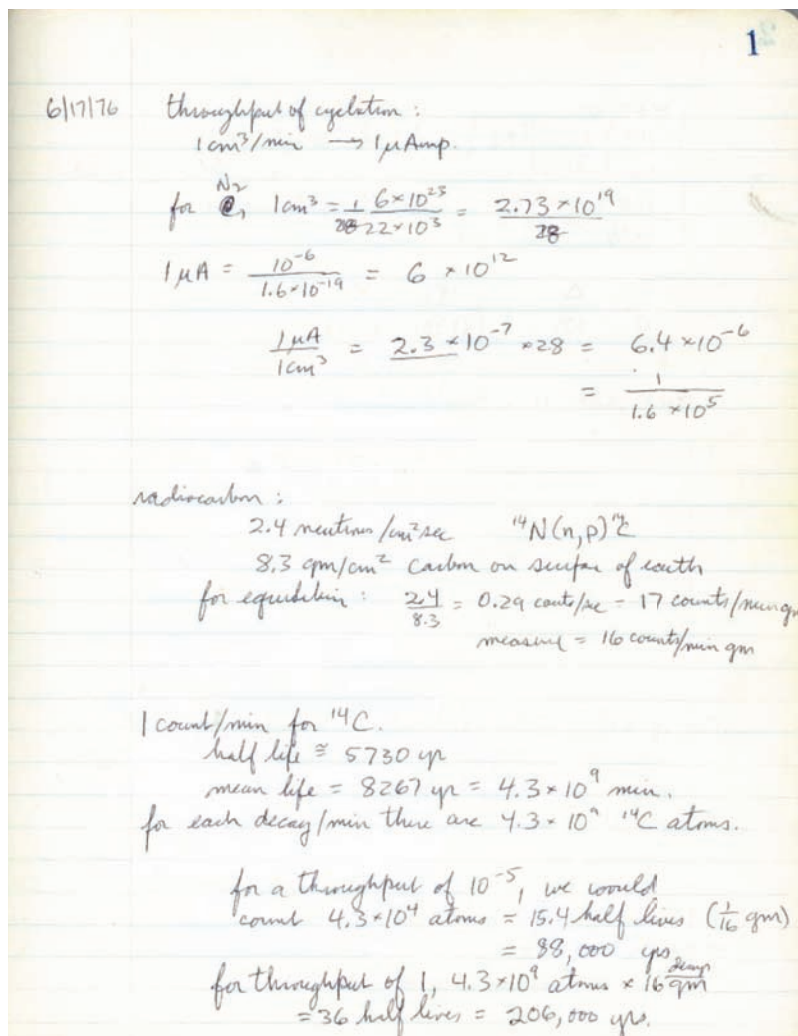 1
6/17/76 throughput of cyclotron :
1 cm³/min → 1 μAmp.
for N₂, 1 cm³ = 1/28 6×10²³/22×10³ = 2.73×10¹⁹/28
1 μA = 10⁻⁶/1.6×10⁻¹⁹ = 6 × 10¹²
1 μA/1 cm³ = 2.3 × 10⁻⁷ × 28 = 6.4 × 10⁻⁶
= 1/1.6 × 10⁵
radiocarbon :
2.4 neutrons/cm² sec ¹⁴N(n,p)¹⁴C
8.3 gm/cm² carbon on surface of earth
for equilibrium : 2.4/8.3 = 0.29 counts/sec = 17 counts/min gm
measure = 16 counts/min gm
1 count/min for ¹⁴C.
half life ≅ 5730 yr
mean life = 8267 yr = 4.3 × 10⁹ min.
for each decay/min there are 4.3 × 10⁹ ¹⁴C atoms.
for a throughput of 10⁻⁵, we would
count 4.3×10⁴ atoms = 15.4 half lives (1/16 gm)
= 88,000 yrs
for throughput of 1, 4.3×10⁹ atoms × 16 /gm
= 36 half lives = 206,000 yrs.